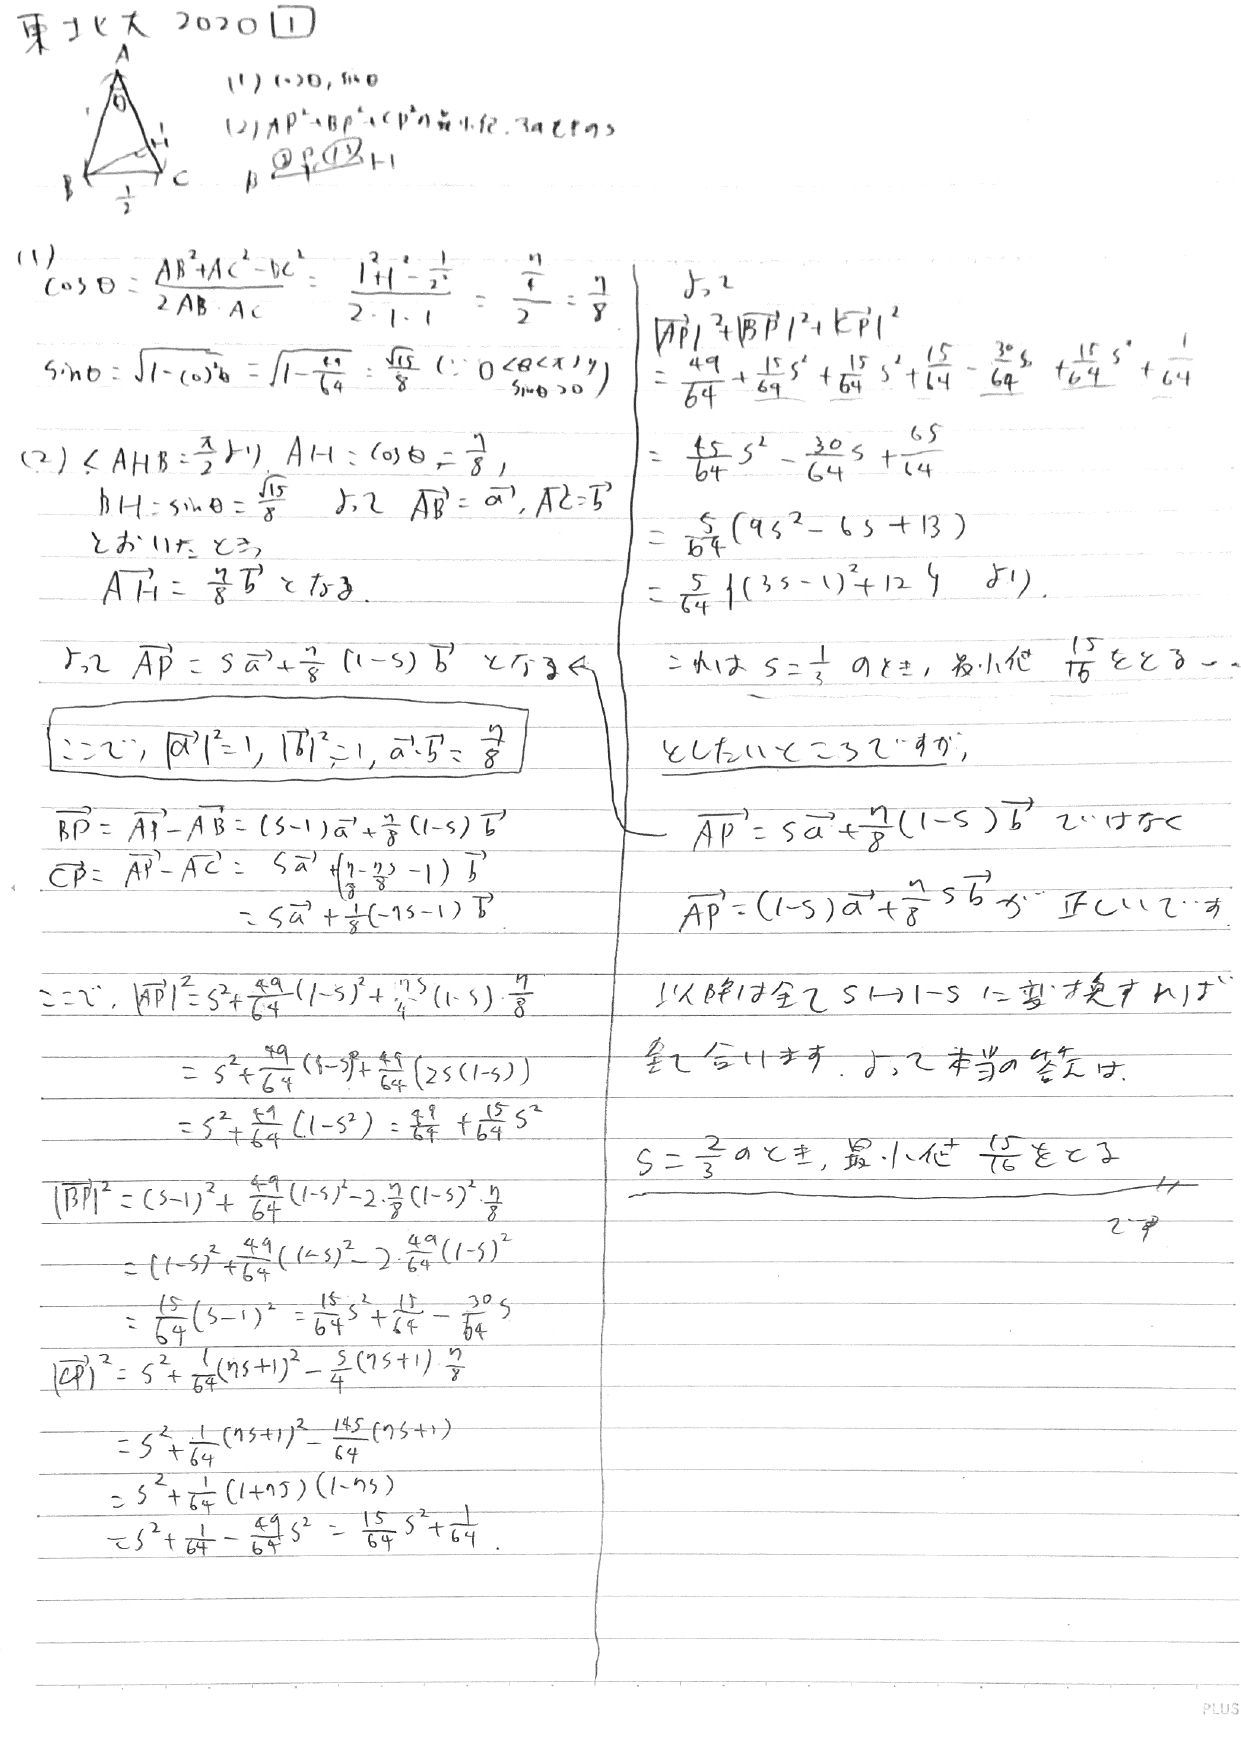 東北大 2020 1
A
θ
1
1
H
B
C
1/2
(1) cosθ, sinθ
(2) AP²+BP²+CP²の最小値, sのとき
B s P 1-s H
(1)
cosθ = (AB²+AC²-BC²)/(2AB・AC) = (1²+1²-1/2²)/(2・1・1) = (7/4)/2 = 7/8
sinθ = √(1-cos²θ) = √(1-49/64) = √15/8 (∵ 0<θ<πより sinθ>0)
(2) ∠AHB = π/2 より, AH = cosθ = 7/8,
BH = sinθ = √15/8 よって AB→ = a→, AC→ = b→
とおいたとき,
AH→ = 7/8 b→ となる.
よって AP→ = sa→ + 7/8 (1-s) b→ となる ←
ここで, |a→|² = 1, |b→|² = 1, a→・b→ = 7/8
BP→ = AP→ - AB→ = (s-1)a→ + 7/8 (1-s) b→
CP→ = AP→ - AC→ = sa→ + (7/8 - 7s/8 - 1) b→
= sa→ + 1/8 (-7s-1) b→
ここで, |AP→|² = s² + 49/64 (1-s)² + 7s/4 (1-s)・7/8
= s² + 49/64 (1-s)² + 49/64 (2s(1-s))
= s² + 49/64 (1-s²) = 49/64 + 15/64 s²
|BP→|² = (s-1)² + 49/64 (1-s)² - 2・7/8 (1-s)²・7/8
= (1-s)² + 49/64 (1-s)² - 2・49/64 (1-s)²
= 15/64 (s-1)² = 15/64 s² + 15/64 - 30/64 s
|CP→|² = s² + 1/64 (7s+1)² - s/4 (7s+1)・7/8
= s² + 1/64 (7s+1)² - 14s/64 (7s+1)
= s² + 1/64 (1+7s)(1-7s)
= s² + 1/64 - 49/64 s² = 15/64 s² + 1/64.
よって
|AP→|² + |BP→|² + |CP→|²
= 49/64 + 15/64 s² + 15/64 s² + 15/64 - 30/64 s + 15/64 s² + 1/64
= 45/64 s² - 30/64 s + 65/64
= 5/64 (9s² - 6s + 13)
= 5/64 {(3s-1)² + 12} より.
これは s = 1/3 のとき, 最小値 15/16 をとる…
としたいところですが,
AP→ = sa→ + 7/8 (1-s) b→ ではなく
AP→ = (1-s)a→ + 7/8 s b→ が正しいです
以降は全て s↦1-s に変換すれば
全て合います. よって本当の答えは.
s = 2/3 のとき, 最小値 15/16 をとる
です
PLUS